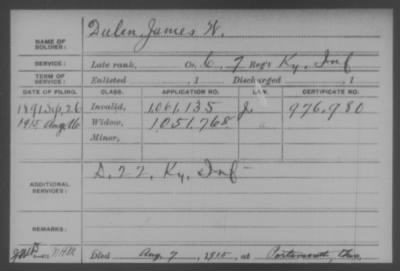 NAME OF SOLDIER: Dulen, James W.
SERVICE: Late rank, Co. C, 7 Reg't Ky. Inf
TERM OF SERVICE: Enlisted , 1 Discharged , 1
DATE OF FILING. CLASS. APPLICATION NO. LAW. CERTIFICATE NO.
1891 Sep. 26 Invalid, 1.061.135 976.980
1915 Aug 16 Widow, 1.051.768
Minor,
ADDITIONAL SERVICES: D. 22, Ky. Inf
REMARKS:
Died Aug. 7, 1915, at Portsmouth, Ohio.